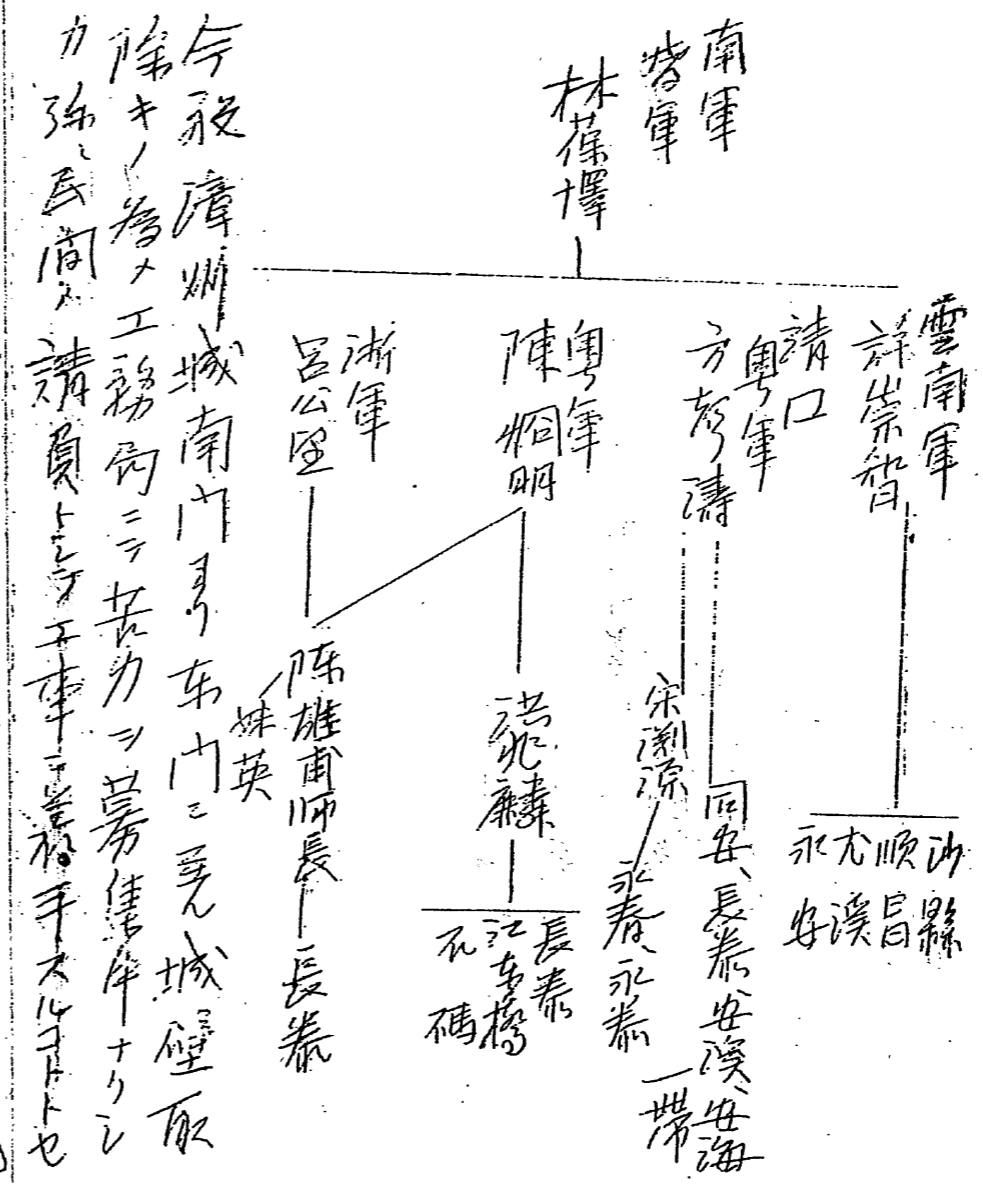 南軍
陸軍
林葆懌
雲南軍
許崇智
沙縣
順昌
尤溪
永安
請口
粤軍
方声濤
同安、長泰、安溪、安海
一帯
宋渊源
永春、永泰
粤軍
陳烱明
洪兆麟
長泰
江東橋
石碼
浙軍
呂公望
陈雄甫師長
長泰
妹英
今般漳州城南门ヨリ东门ニ至ル城壁取
除キノ為メ工務局ニテ苦力ヲ募集中ナリシ
カ弥々民間人請負トシテ工事ニ着手スルコトトセ